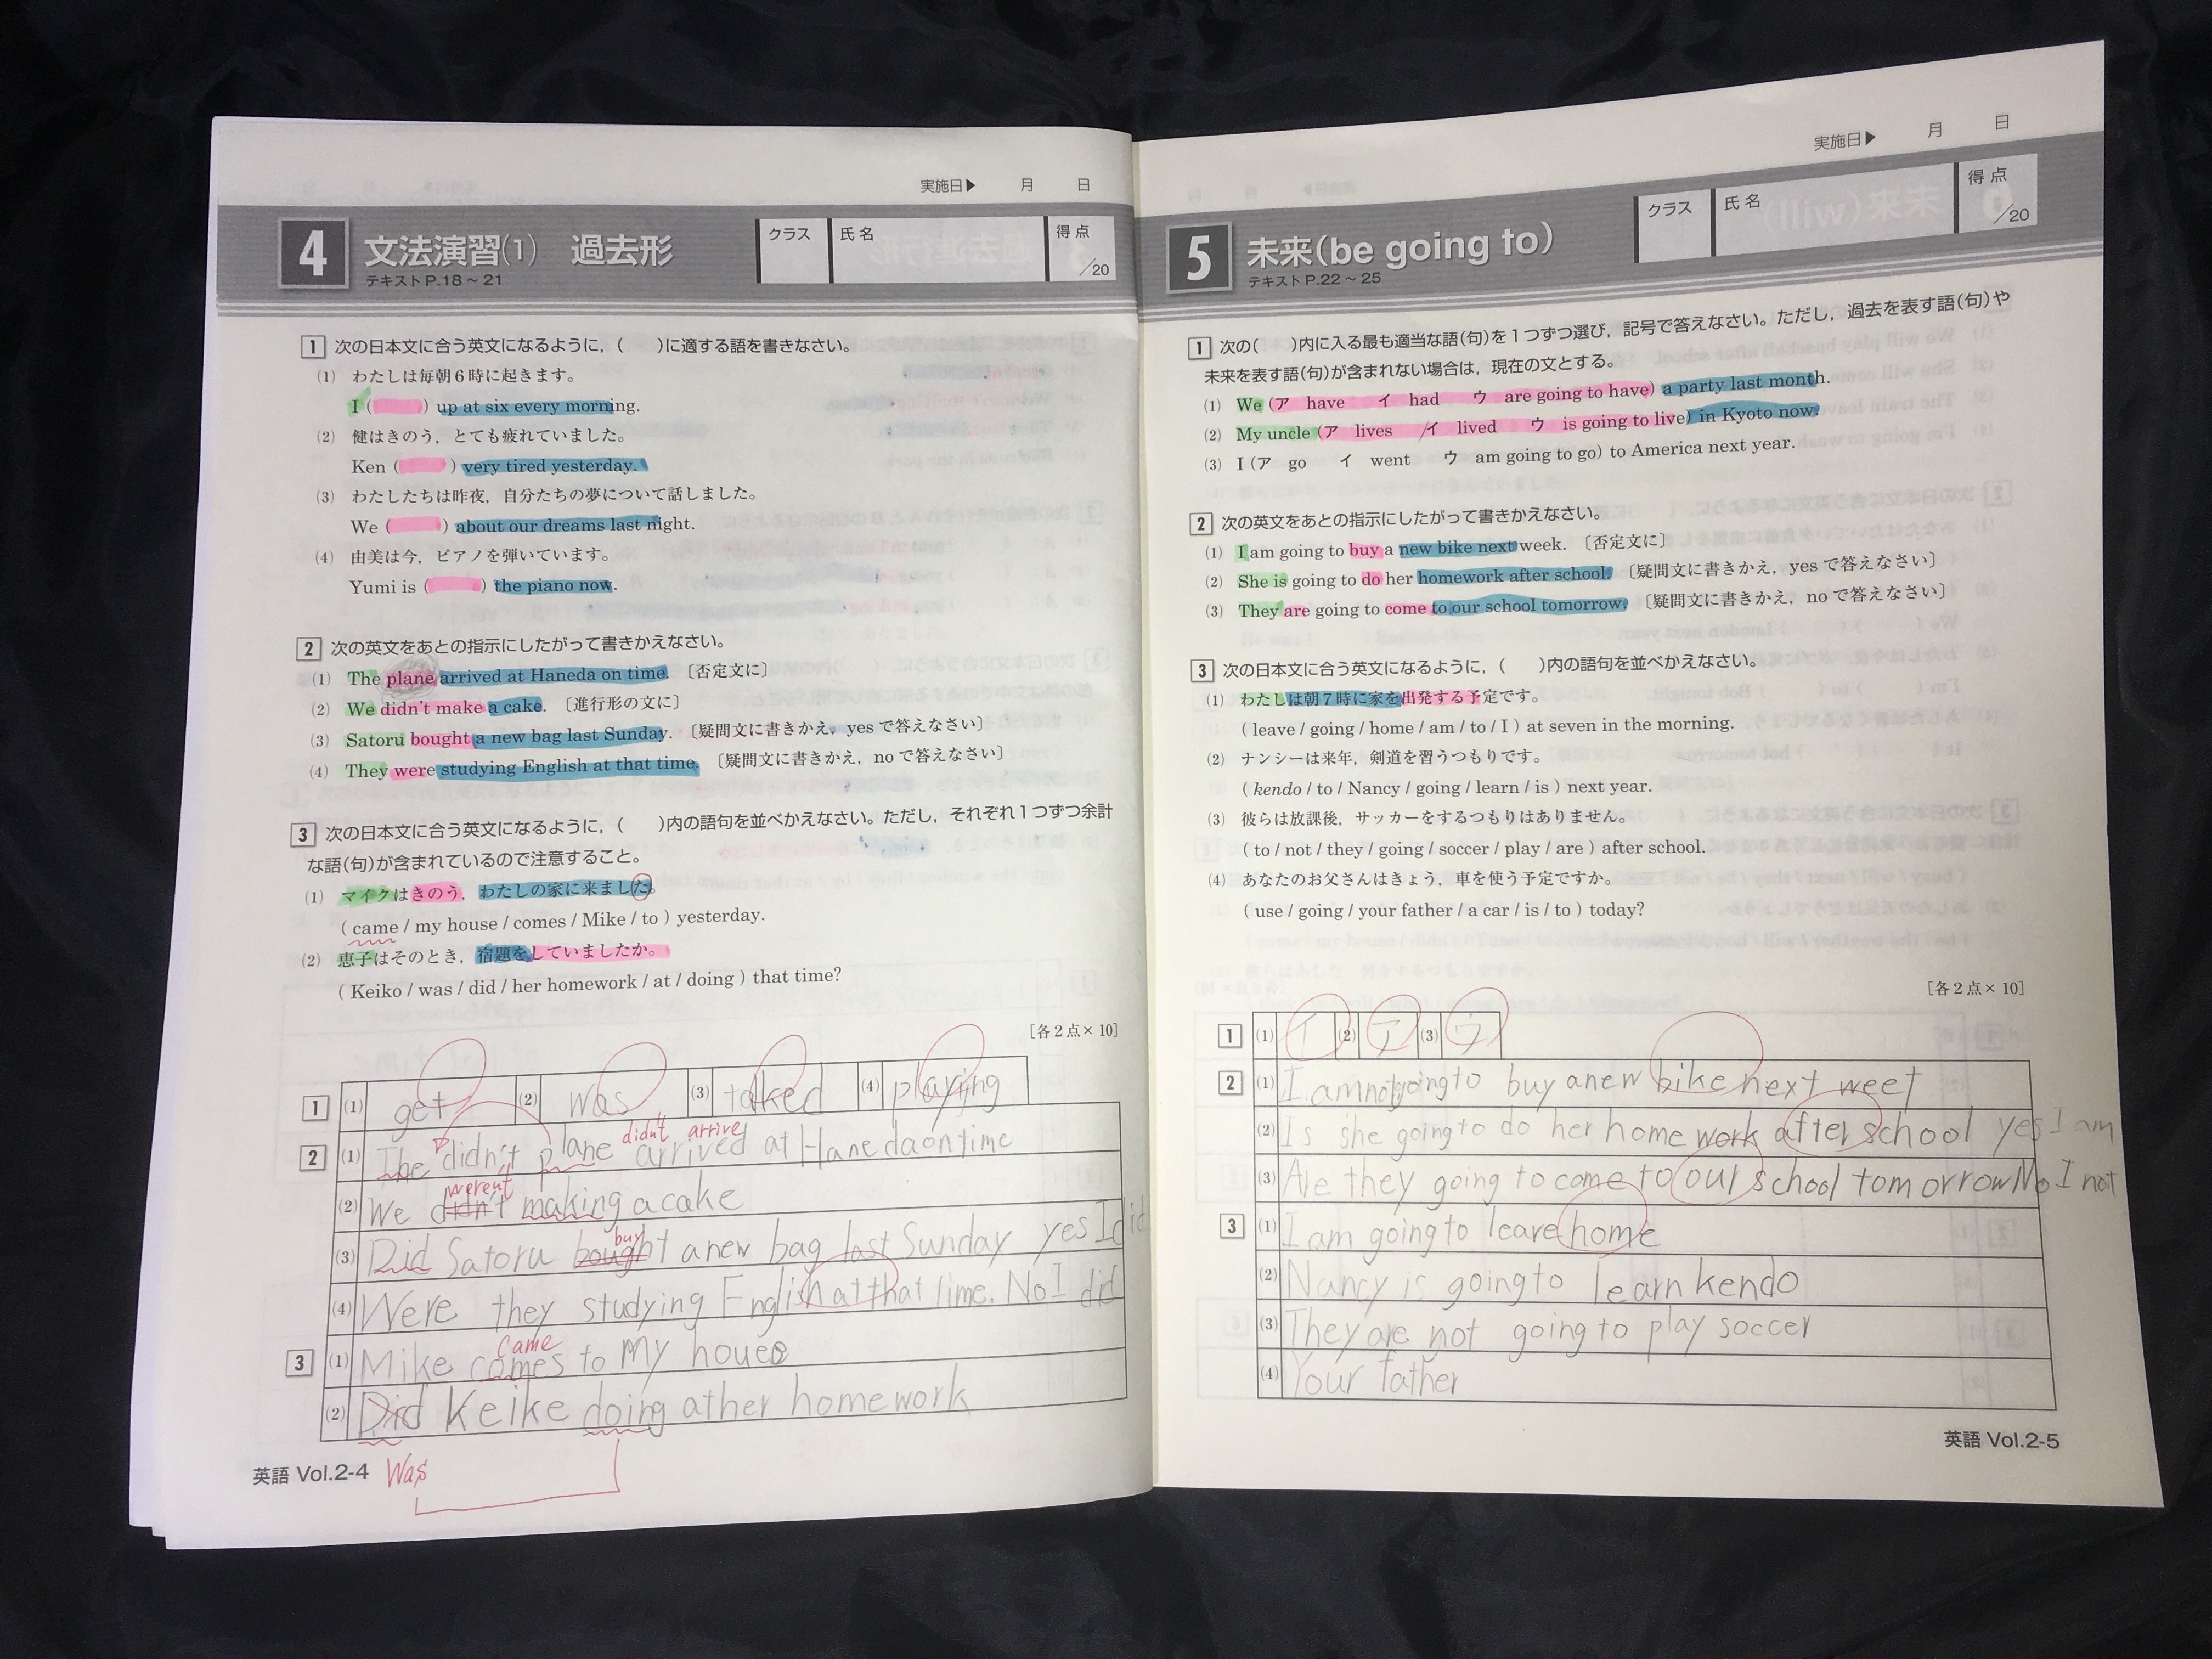 実施日▶ 月 日
4 文法演習(1) 過去形
テキストP.18～21
クラス 氏名 得点 /20
1 次の日本文に合う英文になるように，( )に適する語を書きなさい。
(1) わたしは毎朝6時に起きます。
I ( ) up at six every morning.
(2) 健はきのう，とても疲れていました。
Ken ( ) very tired yesterday.
(3) わたしたちは昨夜，自分たちの夢について話しました。
We ( ) about our dreams last night.
(4) 由美は今，ピアノを弾いています。
Yumi is ( ) the piano now.
2 次の英文をあとの指示にしたがって書きかえなさい。
(1) The plane arrived at Haneda on time. 〔否定文に〕
(2) We didn't make a cake. 〔進行形の文に〕
(3) Satoru bought a new bag last Sunday. 〔疑問文に書きかえ，yesで答えなさい〕
(4) They were studying English at that time. 〔疑問文に書きかえ，noで答えなさい〕
3 次の日本文に合う英文になるように，( )内の語句を並べかえなさい。ただし，それぞれ1つずつ余計
な語(句)が含まれているので注意すること。
(1) マイクはきのう，わたしの家に来ました。
( came / my house / comes / Mike / to ) yesterday.
(2) 恵子はそのとき，宿題をしていましたか。
( Keiko / was / did / her homework / at / doing ) that time?
[各2点×10]
1 (1) get (2) was (3) talked (4) playing
didn't arrive
2 (1) The didn't plane arrived at Hanedaontime
weren't
(2) We didn't making a cake
buy
(3) Did Satoru bought a new bag last Sunday yes I did
(4) Were they studying English at that time. No I did
came
3 (1) Mike comes to My houes
(2) Did Keike doing ather homework
Was
英語 Vol.2-4
実施日▶ 月 日
5 未来(be going to)
テキストP.22～25
クラス 氏名 得点 /20
1 次の( )内に入る最も適当な語(句)を1つずつ選び，記号で答えなさい。ただし，過去を表す語(句)や
未来を表す語(句)が含まれない場合は，現在の文とする。
(1) We (ア have イ had ウ are going to have) a party last month.
(2) My uncle (ア lives イ lived ウ is going to live) in Kyoto now.
(3) I (ア go イ went ウ am going to go) to America next year.
2 次の英文をあとの指示にしたがって書きかえなさい。
(1) I am going to buy a new bike next week. 〔否定文に〕
(2) She is going to do her homework after school. 〔疑問文に書きかえ，yesで答えなさい〕
(3) They are going to come to our school tomorrow. 〔疑問文に書きかえ，noで答えなさい〕
3 次の日本文に合う英文になるように，( )内の語句を並べかえなさい。
(1) わたしは朝7時に家を出発する予定です。
( leave / going / home / am / to / I ) at seven in the morning.
(2) ナンシーは来年，剣道を習うつもりです。
( kendo / to / Nancy / going / learn / is ) next year.
(3) 彼らは放課後，サッカーをするつもりはありません。
( to / not / they / going / soccer / play / are ) after school.
(4) あなたのお父さんはきょう，車を使う予定ですか。
( use / going / your father / a car / is / to ) today?
[各2点×10]
1 (1) イ (2) ア (3) ウ
2 (1) I am not going to buy a new bike next weet
(2) Is she going to do her home work after school yes I am
(3) Are they going to come to our school tomorrow No I not
3 (1) I am going to leave home
(2) Nancy is going to learn kendo
(3) They are not going to play soccer
(4) Your father
英語 Vol.2-5